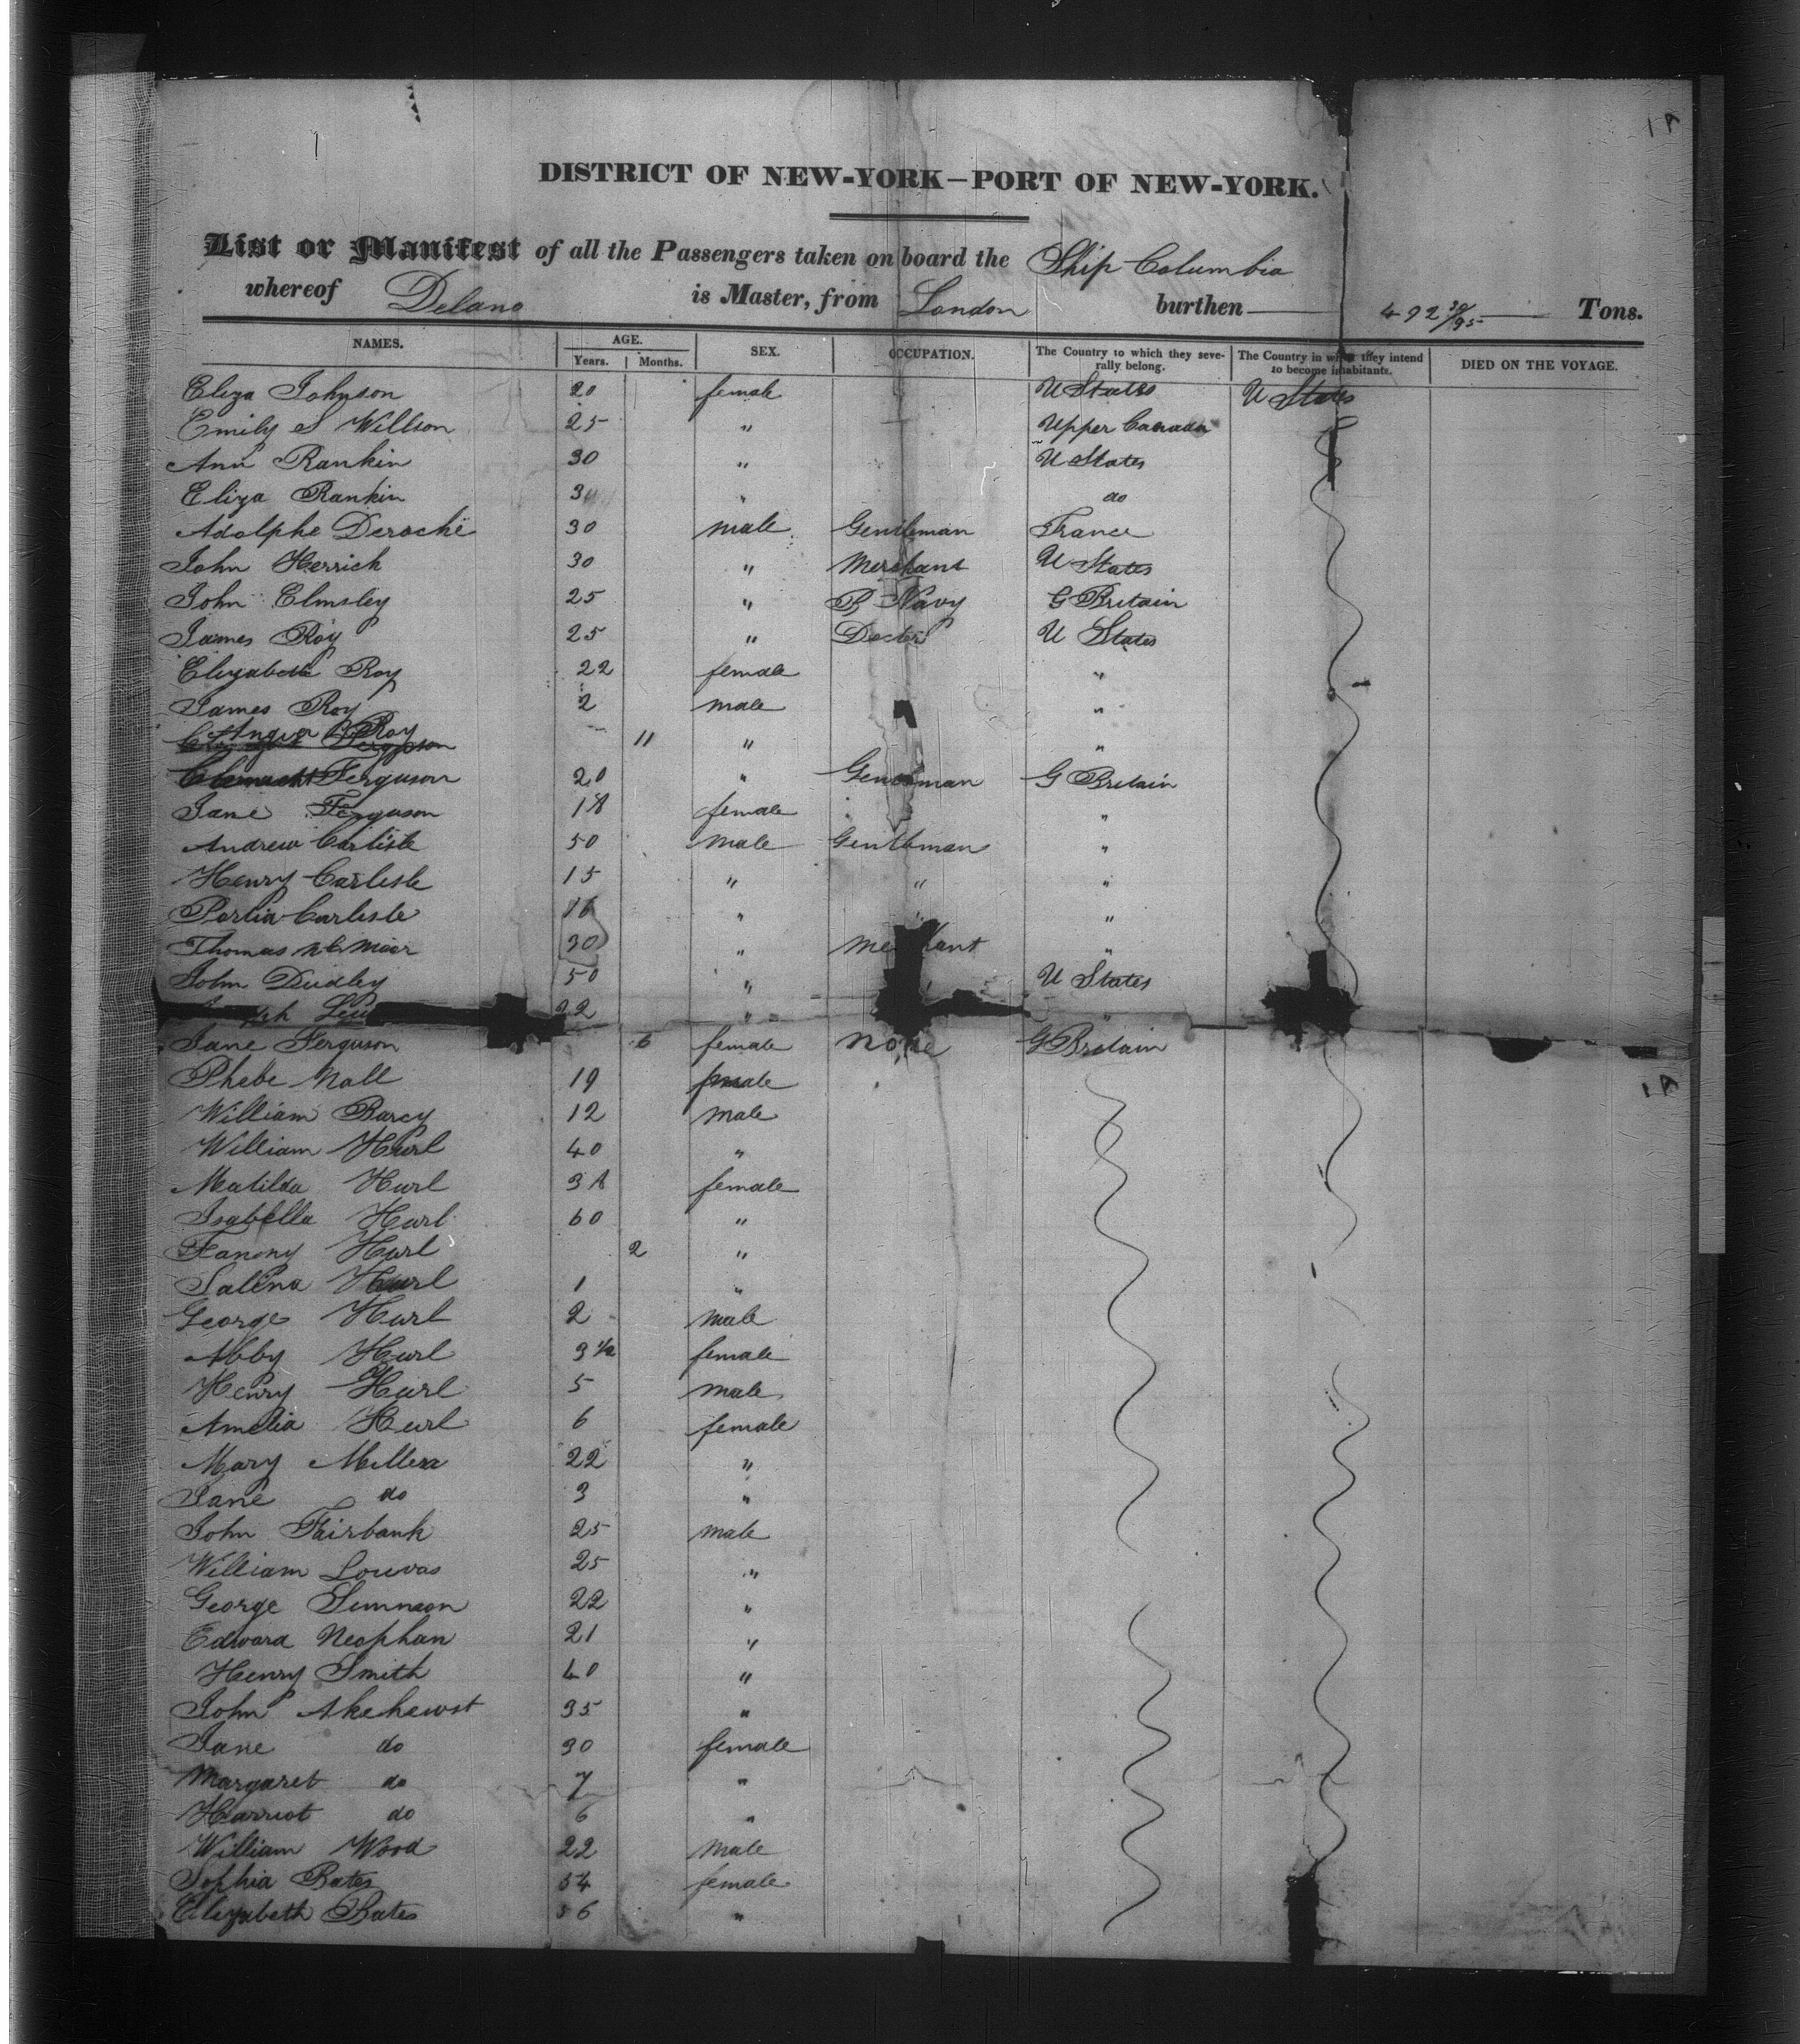 DISTRICT OF NEW-YORK—PORT OF NEW-YORK.
List or Manifest of all the Passengers taken on board the Ship Columbia
whereof Delano is Master, from London burthen 492 30/95 Tons.
NAMES. AGE. SEX. OCCUPATION. The Country to which they seve- The Country in which they intend DIED ON THE VOYAGE.
Years. Months. rally belong. to become inhabitants.
Eliza Johnson 20 female U States U States
Emily S Willson 25 " Upper Canada
Ann Rankin 30 " U States
Eliza Rankin 30 " do
Adolphe Deroche 30 male Gentleman France
John Herrick 30 " Merchant U States
John Elmsley 25 " B Navy G Britain
James Roy 25 " Doctor U States
Elizabeth Roy 22 female "
James Roy 2 male "
Roy 11 " "
Ferguson 20 " Gentleman G Britain
Jane Ferguson 18 female "
Andrew Carlisle 50 male Gentleman "
Henry Carlisle 15 " " "
Portia Carlisle 16 " "
Thomas 30 " Merchant "
John Dudley 50 " U States
22 " "
Jane Ferguson 6 female none G Britain
Phebe Nall 19 female
William Barcy 12 male
William Hurl 40 "
Matilda Hurl 38 female
Isabella Hurl 60 "
Fanony Hurl 2 "
Salena Hurl 1 "
George Hurl 2 male
Abby Hurl 3 1/2 female
Henry Hurl 5 male
Amelia Hurl 6 female
Mary 22 "
Jane do 3 "
John Fairbank 25 male
William Louvas 25 "
George 22 "
Edward Neophan 21 "
Henry Smith 40 "
John Akehewst 35 "
Jane do 30 female
Margaret do 7 "
Harriot do 6 "
William Wood 22 male
Sophia Bates 54 female
Elizabeth Bates 56 "